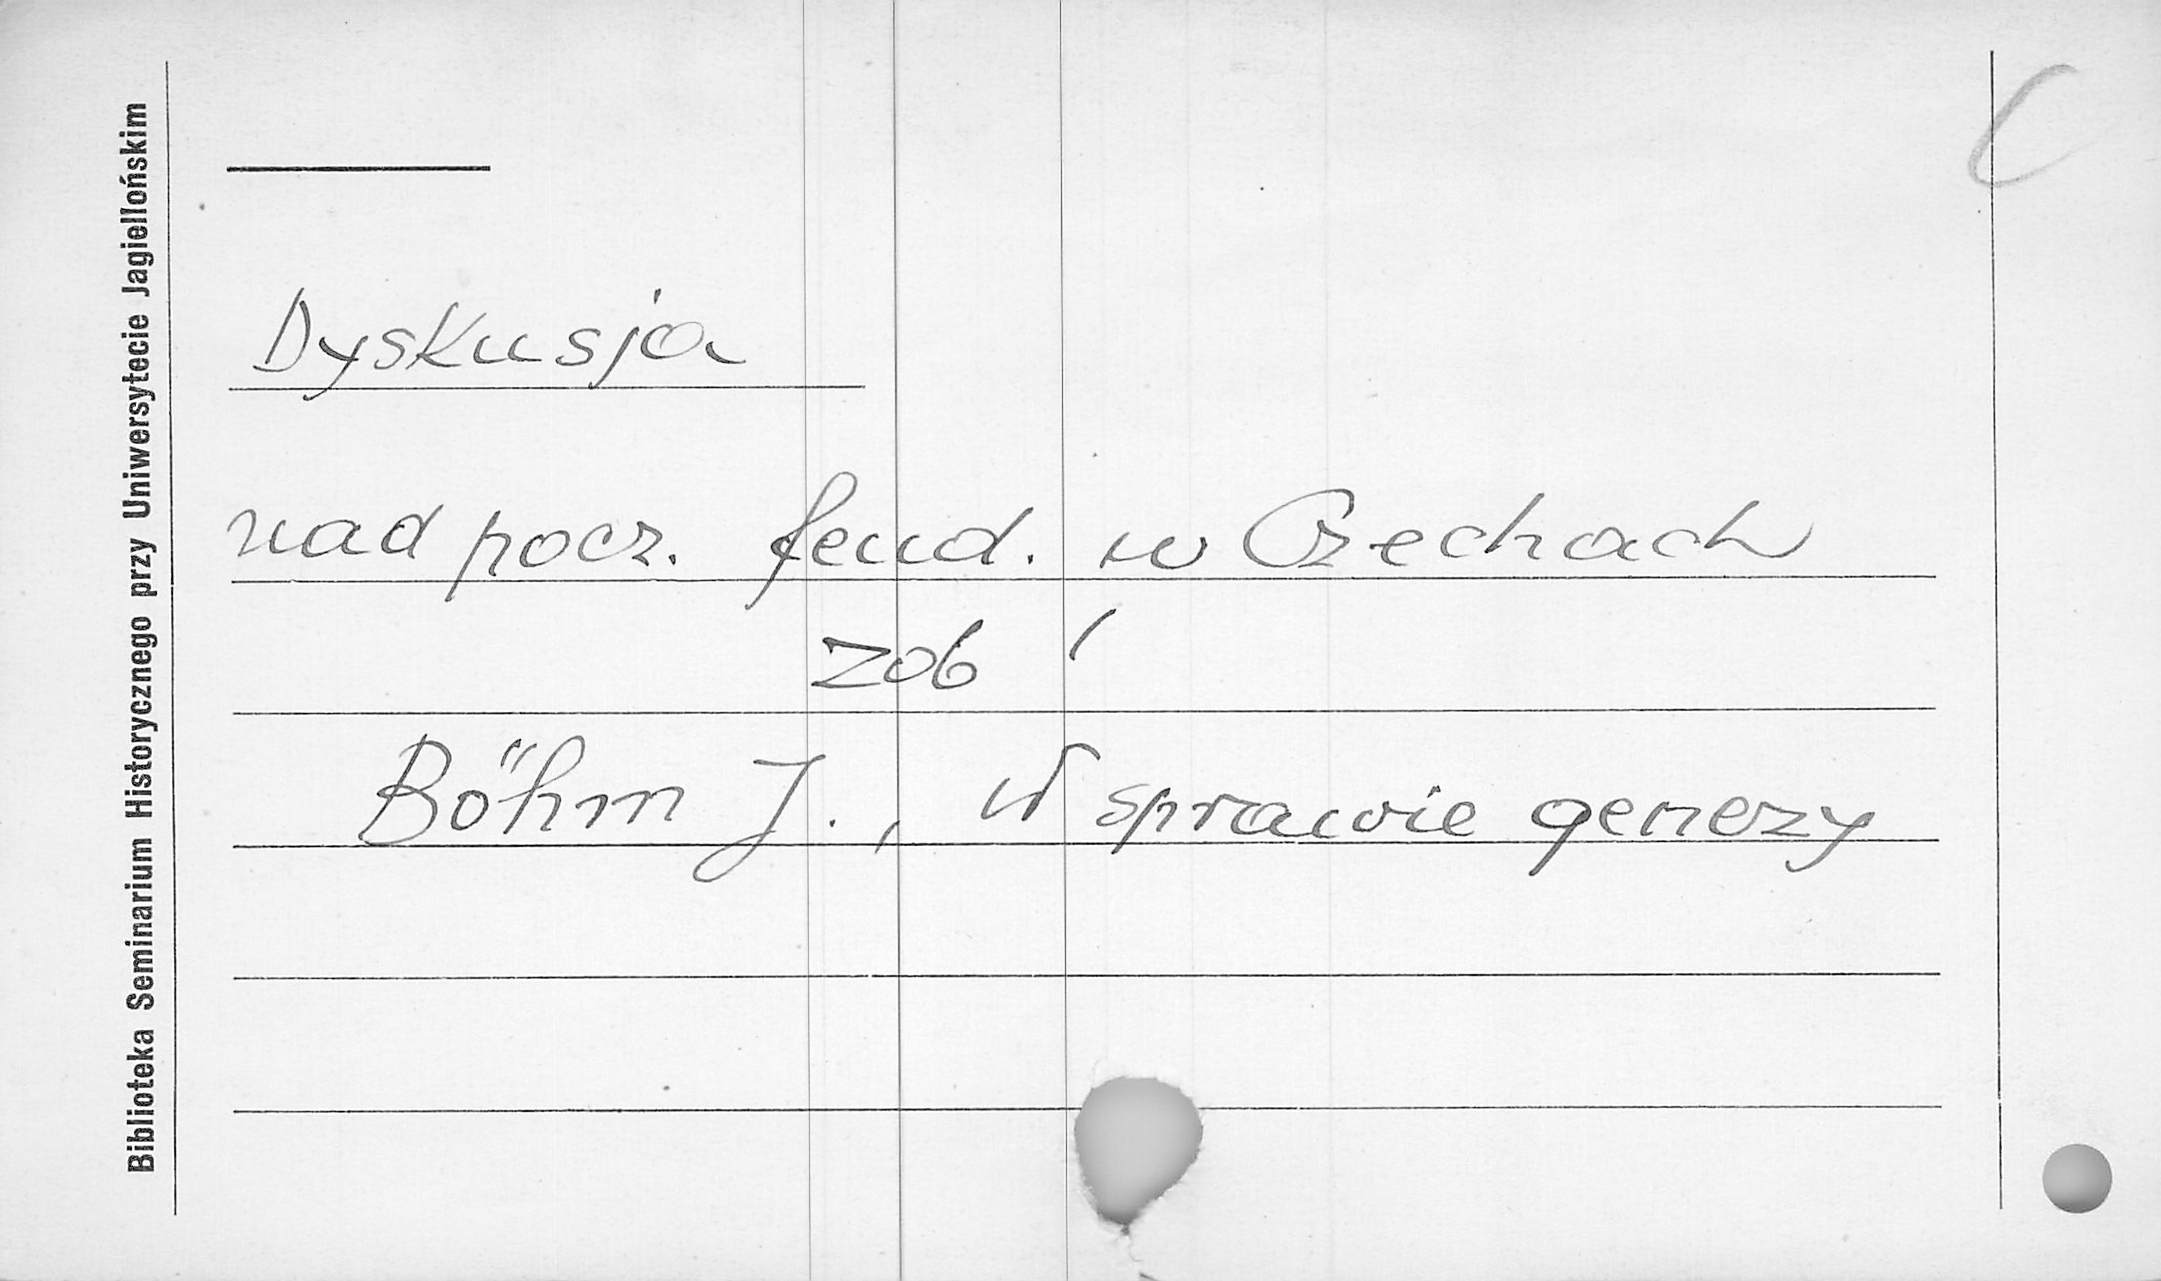 Biblioteka Seminarium Historycznego przy Uniwersytecie Jagiellońskim
Dyskusja
nad pocz. feud. w Czechach
zob
Böhm J., W sprawie genezy